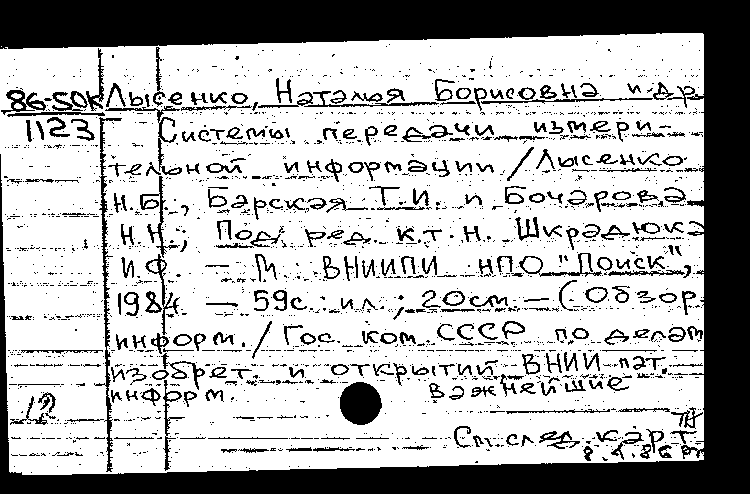 86-50К Лысенко, Наталья Борисовна и др
1123 Системы передачи измери-
тельной информации / Лысенко
Н.Б., Барская Т.И. и Бочарова
Н.Н.; Под ред. к.т.н. Шкрадюка
И.Ф. – М. ВНИИПИ НПО "Поиск",
1984. — 59с. ил.; 20см — (Обзор.
информ. / Гос. ком. СССР по делам
изобрет. и открытий ВНИИ пат.
информ. Важнейшие
12
См. след. карт.